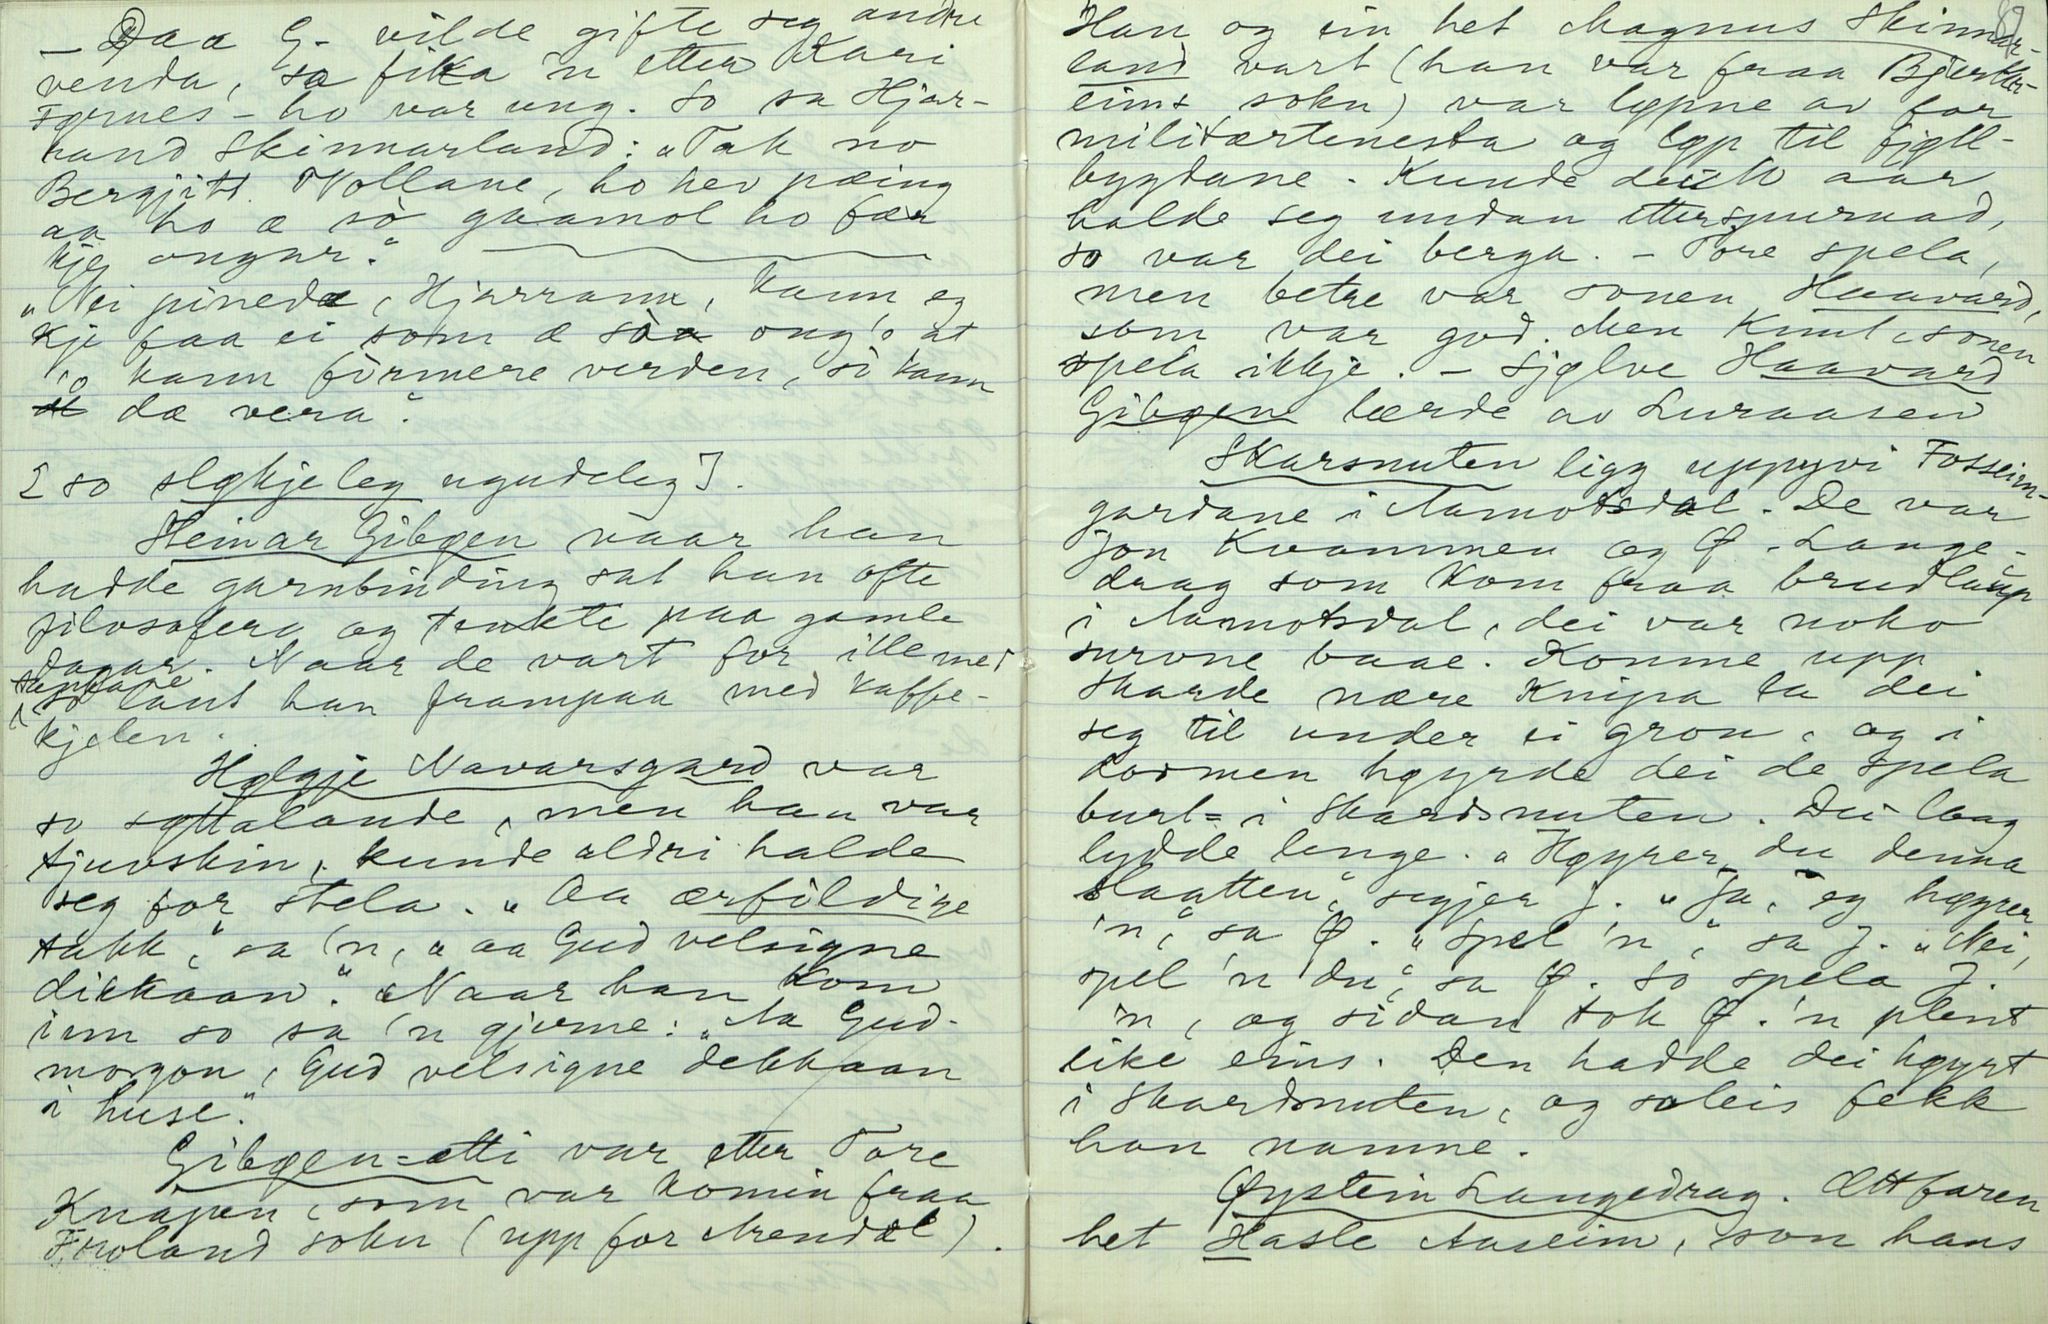 — Daa G- vilde gifte seg andre
venda, sa fika 'n etter Kari
Førnes - ho var ung. So sa Hjar-
hand Skinnarland: „Tak no
Bergjitt Nollane, ho hev pæing
aa ho æ sò gaamol ho fær
kje ongar."
„Nei pinedæ, Hjarrann, kann eg
kje faa ei som æ sòa ong 'o at
'o kann fòrmere verden, sò kann
dæ vera".
[so sløkjeleg ugudeleg].
Heinar Gibøen naar han
hadde garnbinding sat han ofte
filosofera og tenkte paa gamle
dagar. Naar de vart for ille med
tankane
so tant han frampaa med kaffe-
kjelen.
Hølgje Navarsgard var
so søttalande, men han var
tjuvskin, kunde aldri halde
seg for stela. „Aa ærfòldige
takk," sa 'n, „aa Gud velsigne
dikkaan." Naar han kom
inn so sa 'n gjerne: „Aa Gud-
morgon, Gud velsigne dekkaan
i huse."
Gibøen-ætti var etter Tore
Knapen, som var komin fraa
Froland sokn (upp for Arendal).
89
Han og ein het Magnus Skinnar-
land vart (han var fraa Bjerkr-
eims sokn) var løpne av for
militærtenesta og løp til fjøll-
bygdane. Kunde dei eitt aar
halde seg undan etterspurnad,
so var dei berga. - Tore spela,
men betre var sonen Haavard,
som var god. Men Knut, sonen
spela ikkje. - Sjølve Haavard
Gibøen lærde av Luraasen
Skarsnuten ligg uppyvi Fosseim-
gardane i Aamotsdal. De var
Jon Kvammen og Ø. Lange-
drag som kom fraa brudlaup
i Aamotsdal, dei var noko
survne baae. Komne upp
Skarde nære Knipa la dei
seg til under ei gron, og i
dormen høyrde dei de spela
burt i Skardsnuten. Dei laag
lydde lenge. „Høyrer du denna
slaatten," segjer J. „Ja, eg høyrer
'n," sa Ø. „Spel 'n," sa J. „Nei,
spel 'n du," sa Ø. So spela J.
'n, og sidan tok Ø. 'n plent
like eins. Den hadde dei høyrt
i Skardsnuten, og soleis fekk
han namne.
Øystein Langedrag. Ættfaren
het Hasle Aaseim, son hans